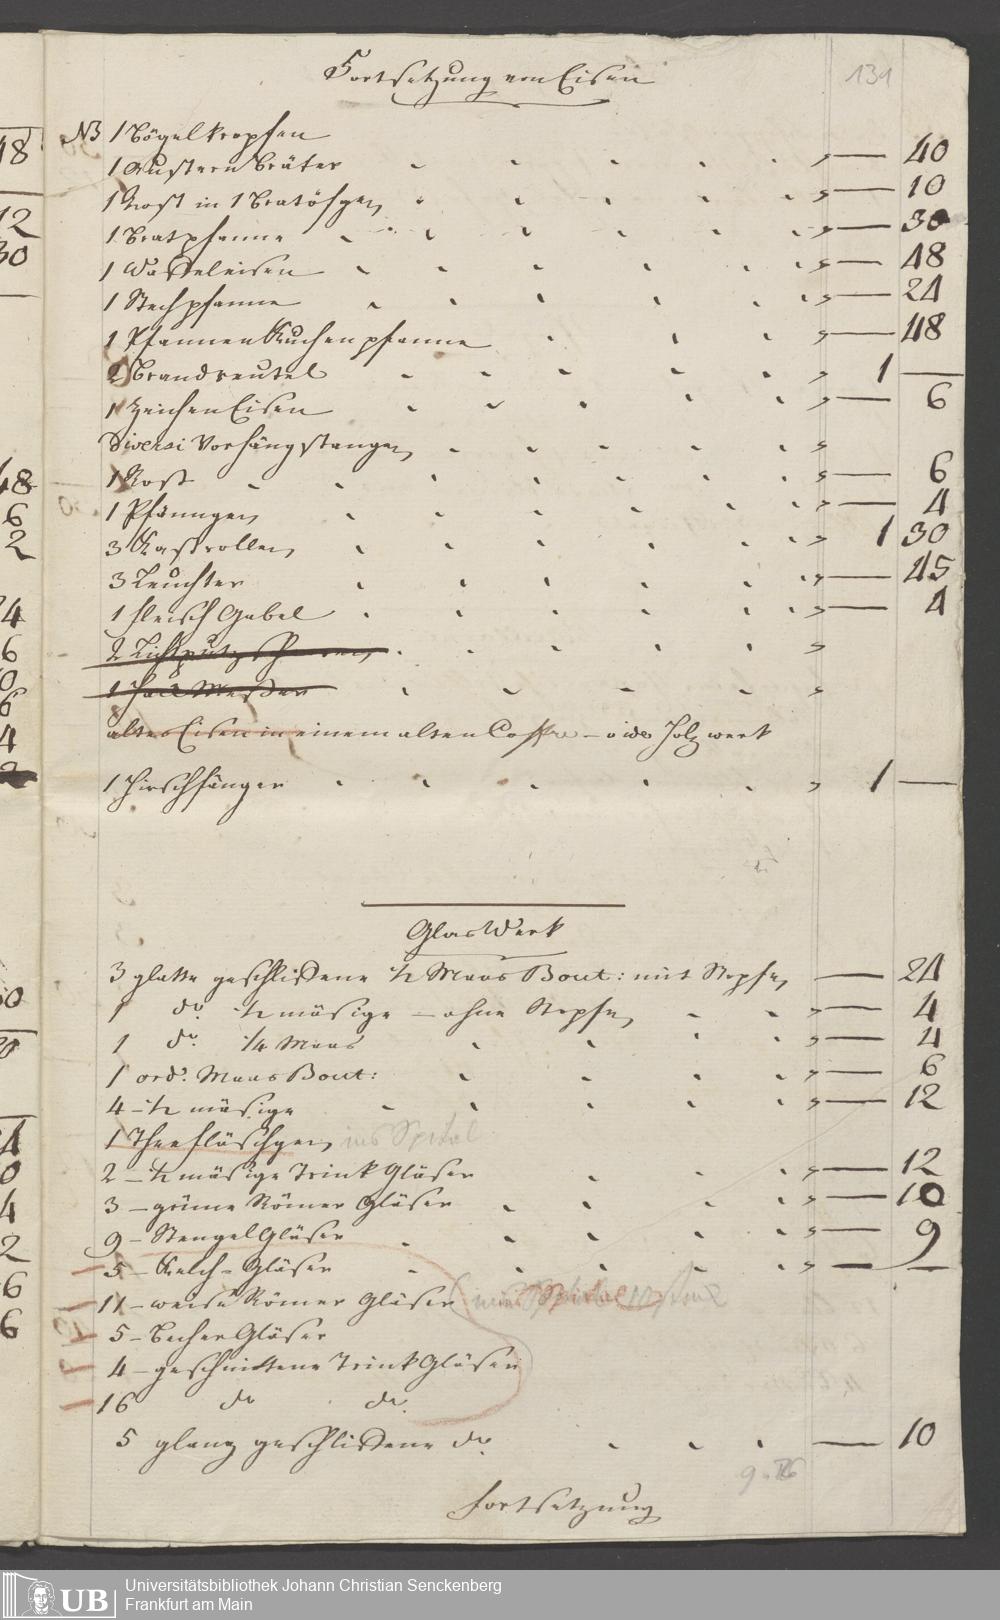 Fortsetzung von Eisen
131
NB 1 Bögelkropfen
1 Austern Bräter — 40
1 Rost in 1 Bratöfgen — 10
1 Bratpfanne — 30
1 Waffeleisen — 48
1 Stechpfanne — 24
1 Pfannen Kuchenpfanne — 48
2 Brandreutel 1 —
1 Zeichen Eisen — 6
Diversi Vorhängstangen
1 Rost — 6
1 Pfänngen — 4
3 Kastrollen 1 30
3 Leuchter — 45
1 fleisch Gabel — 4
2 Lichtputzscheeren
1 Messer
altes Eisen in einem alten Coffre – vide Holzwerk
1 Hirschfänger 1 —
Glas Werk
3 glatte geschliffene ½ Maas Bout: mit Stopfen — 24
1 do ½ mäsige – ohne Stopfen — 4
1 do ¼ Maas — 4
1 ord. Maas Bout: — 6
4 – ½ mäsige — 12
1 Theefläschgen ins Spital
2 – ½ mäsige Trink Gläser — 12
3 – grüne Römer Gläser — 10
9 – Stengel Gläser — 9
5 – Kelch-Gläser — —
11 – weise Römer Gläser
5 – Becher Gläser
4 – geschnittene Trink Gläser
16 do do.
5 glanz geschliffene do. — 10
Fortsetzung
UB
Universitätsbibliothek Johann Christian Senckenberg
Frankfurt am Main